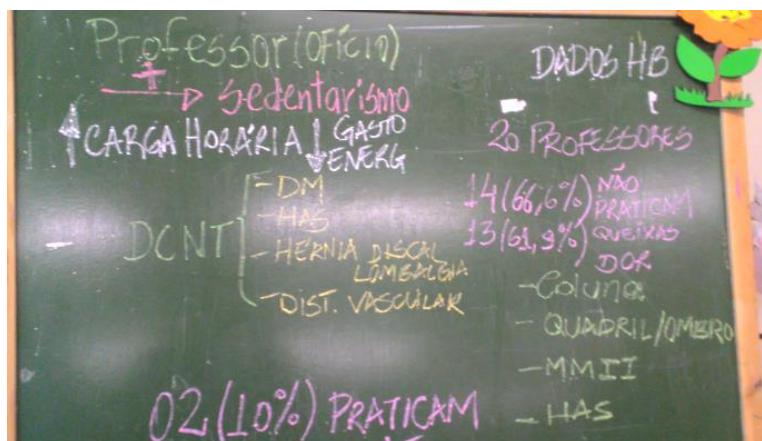 Professor (OFÍCIO)
+
Sedentarismo
↑ CARGA HORÁRIA ↓ GASTO
ENERG
DCNT
- DM
- HAS
- HERNIA DISCAL
LOMBALGIA
- DIST. VASCULAR
02 (10%) PRATICAM
DADOS HB
20 PROFESSORES
14 (66,6%) NÃO
PRATICAM
13 (61,9%) QUEIXAS
DOR
- Coluna
- QUADRIL/OMBRO
- MMII
- HAS